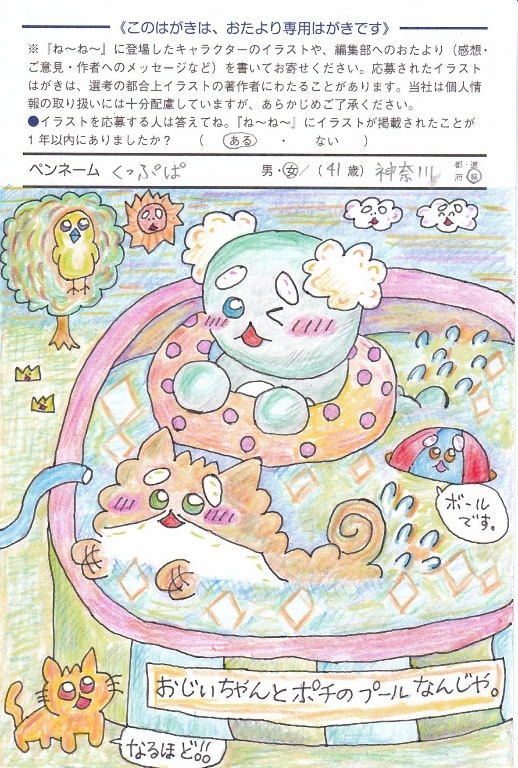 《このはがきは、おたより専用はがきです》
※『ね〜ね〜』に登場したキャラクターのイラストや、編集部へのおたより（感想・
ご意見・作者へのメッセージなど）を書いてお寄せください。応募されたイラスト
はがきは、選考の都合上イラストの著作者にわたることがあります。当社は個人情
報の取り扱いには十分配慮していますが、あらかじめご了承ください。
●イラストを応募する人は答えてね。『ね〜ね〜』にイラストが掲載されたことが
１年以内にありましたか？　（　ある　・　ない　）
ペンネーム くっぷぱ 男・女／（41歳） 神奈川 都・道 府・県
ボール
です。
おじいちゃんとポチのプールなんじゃ。
なるほど!!